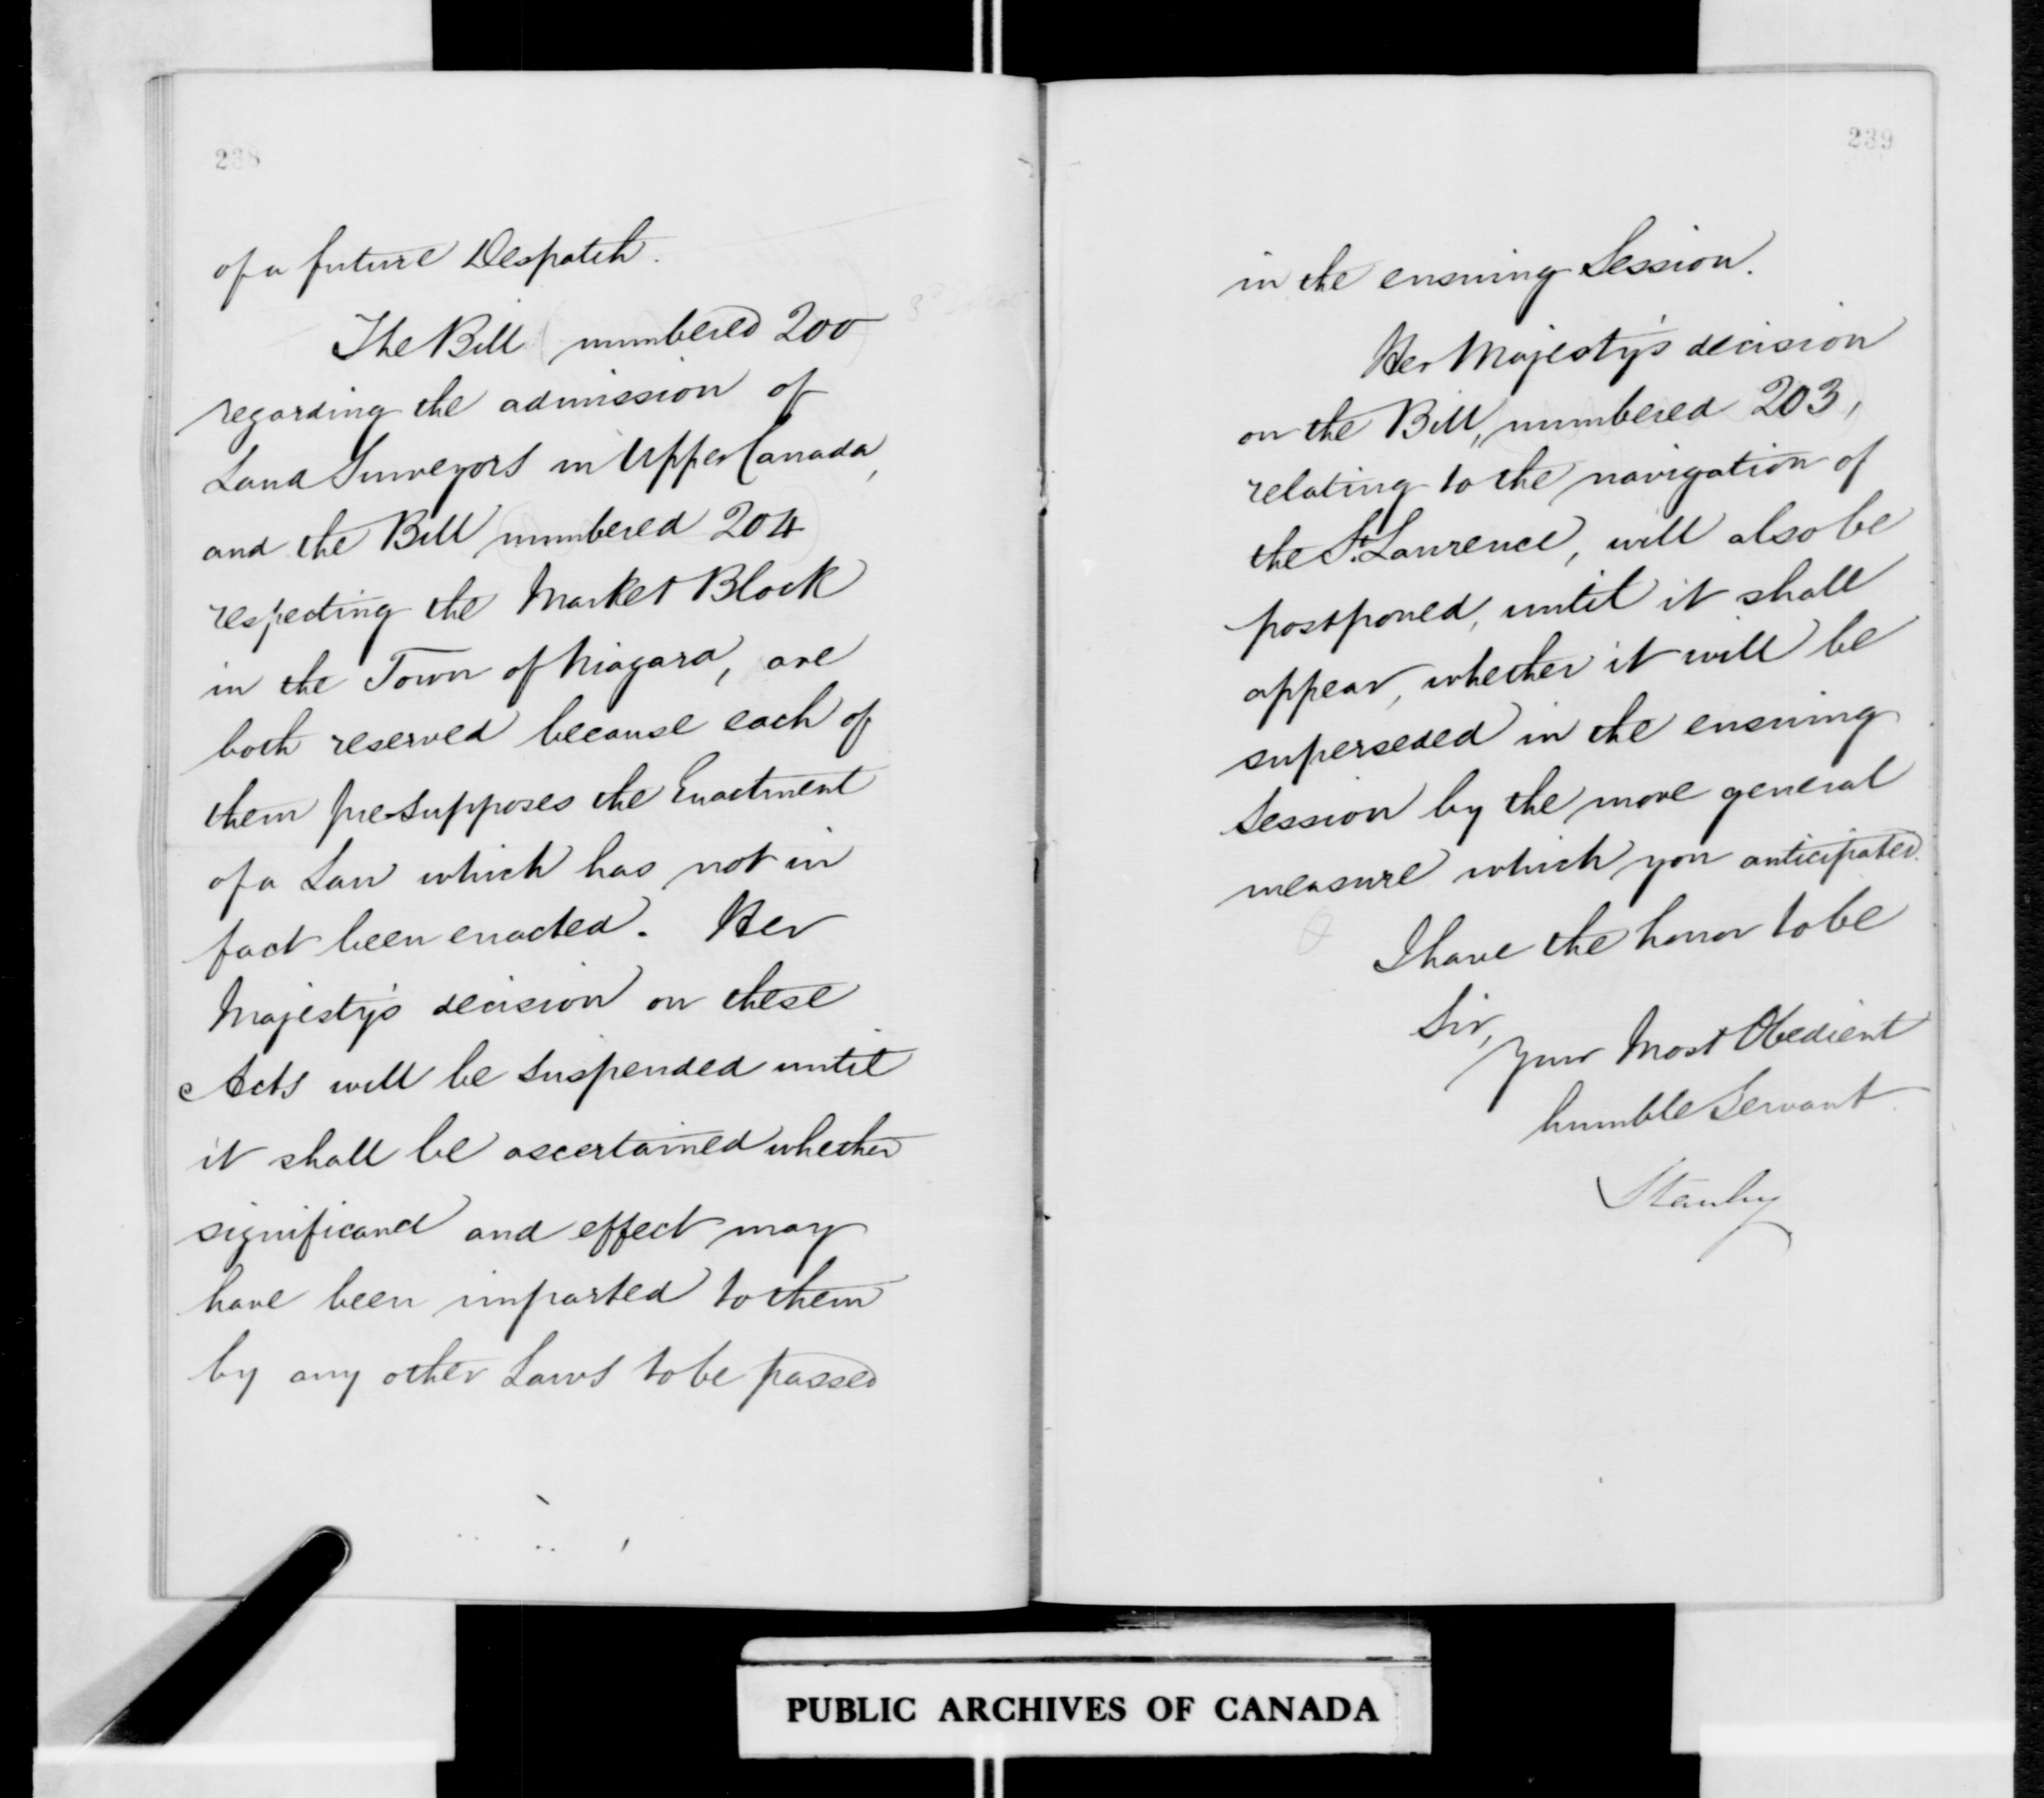 238
of a future Despatch.
The Bill (numbered 200)
regarding the admission of
Land Surveyors in Upper Canada,
and the Bill (numbered 204)
respecting the Market Block
in the Town of Niagara, are
both reserved because each of
them pre-supposes the Enactment
of a Law which has not in
fact been enacted. Her
Majesty's decision on these
Acts will be suspended until
it shall be ascertained whether
significance and effect may
have been imparted to them
by any other Laws to be passed
239
in the ensuing Session.
Her Majesty's decision
on the Bill, numbered 203,
relating to the navigation of
the St. Lawrence, will also be
postponed, until it shall
appear, whether it will be
superseded in the ensuing
Session by the more general
measure which you anticipated.
I have the honor to be
Sir,
Your Most Obedient
humble Servant
Stanley
PUBLIC ARCHIVES OF CANADA